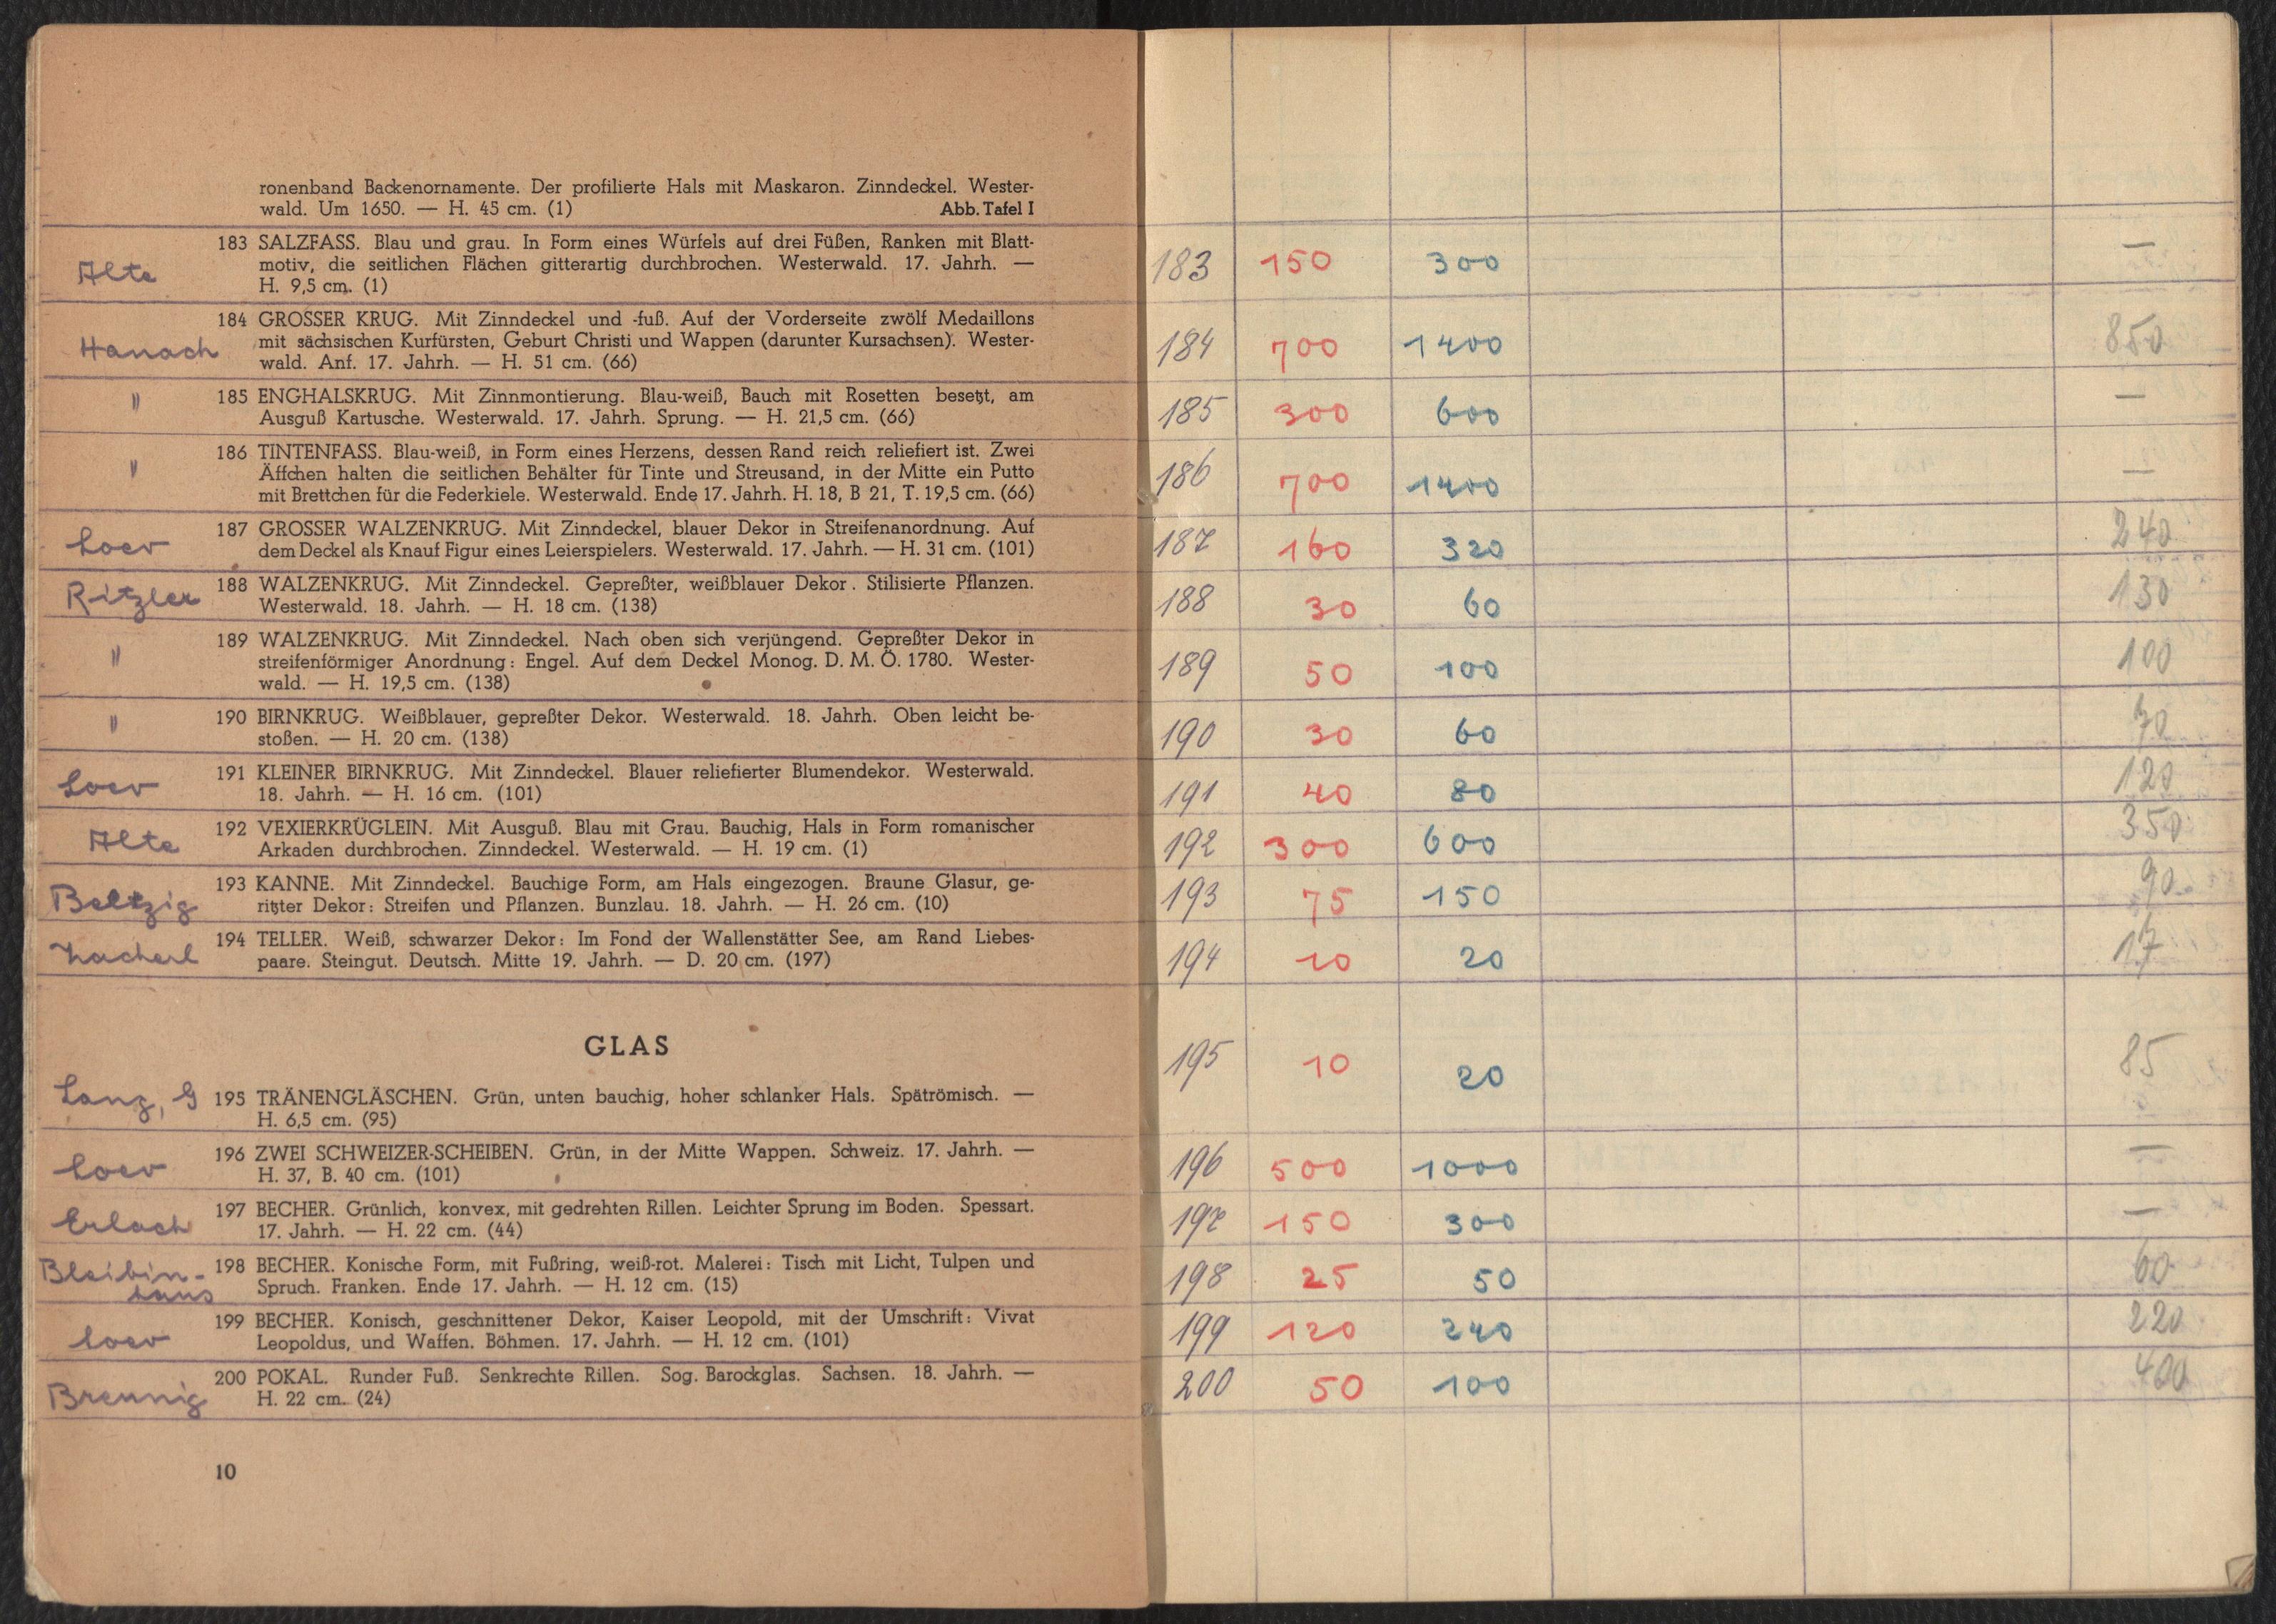 ronenband Backenornamente. Der profilierte Hals mit Maskaron. Zinndeckel. Wester-
wald. Um 1650. — H. 45 cm. (1) Abb. Tafel I
183 SALZFASS. Blau und grau. In Form eines Würfels auf drei Füßen, Ranken mit Blatt-
Alte motiv, die seitlichen Flächen gitterartig durchbrochen. Westerwald. 17. Jahrh. —
H. 9,5 cm. (1)
184 GROSSER KRUG. Mit Zinndeckel und -fuß. Auf der Vorderseite zwölf Medaillons
Hanach mit sächsischen Kurfürsten, Geburt Christi und Wappen (darunter Kursachsen). Wester-
wald. Anf. 17. Jahrh. — H. 51 cm. (66)
" 185 ENGHALSKRUG. Mit Zinnmontierung. Blau-weiß, Bauch mit Rosetten besetzt, am
Ausguß Kartusche. Westerwald. 17. Jahrh. Sprung. — H. 21,5 cm. (66)
186 TINTENFASS. Blau-weiß, in Form eines Herzens, dessen Rand reich reliefiert ist. Zwei
" Äffchen halten die seitlichen Behälter für Tinte und Streusand, in der Mitte ein Putto
mit Brettchen für die Federkiele. Westerwald. Ende 17. Jahrh. H. 18, B 21, T. 19,5 cm. (66)
187 GROSSER WALZENKRUG. Mit Zinndeckel, blauer Dekor in Streifenanordnung. Auf
Loev dem Deckel als Knauf Figur eines Leierspielers. Westerwald. 17. Jahrh. — H. 31 cm. (101)
188 WALZENKRUG. Mit Zinndeckel. Gepreßter, weißblauer Dekor. Stilisierte Pflanzen.
Ritzler Westerwald. 18. Jahrh. — H. 18 cm. (138)
189 WALZENKRUG. Mit Zinndeckel. Nach oben sich verjüngend. Gepreßter Dekor in
" streifenförmiger Anordnung: Engel. Auf dem Deckel Monog. D. M. Ö. 1780. Wester-
wald. — H. 19,5 cm. (138)
" 190 BIRNKRUG. Weißblauer, gepreßter Dekor. Westerwald. 18. Jahrh. Oben leicht be-
stoßen. — H. 20 cm. (138)
191 KLEINER BIRNKRUG. Mit Zinndeckel. Blauer reliefierter Blumendekor. Westerwald.
Loev 18. Jahrh. — H. 16 cm. (101)
192 VEXIERKRÜGLEIN. Mit Ausguß. Blau mit Grau. Bauchig, Hals in Form romanischer
Alte Arkaden durchbrochen. Zinndeckel. Westerwald. — H. 19 cm. (1)
193 KANNE. Mit Zinndeckel. Bauchige Form, am Hals eingezogen. Braune Glasur, ge-
Beltzig ritzter Dekor: Streifen und Pflanzen. Bunzlau. 18. Jahrh. — H. 26 cm. (10)
194 TELLER. Weiß, schwarzer Dekor: Im Fond der Wallenstätter See, am Rand Liebes-
Zacherl paare. Steingut. Deutsch. Mitte 19. Jahrh. — D. 20 cm. (197)
GLAS
Lang, G 195 TRÄNENGLÄSCHEN. Grün, unten bauchig, hoher schlanker Hals. Spätrömisch. —
H. 6,5 cm. (95)
196 ZWEI SCHWEIZER-SCHEIBEN. Grün, in der Mitte Wappen. Schweiz. 17. Jahrh. —
Loev H. 37, B. 40 cm. (101)
197 BECHER. Grünlich, konvex, mit gedrehten Rillen. Leichter Sprung im Boden. Spessart.
Erlach 17. Jahrh. — H. 22 cm. (44)
Bleibin- 198 BECHER. Konische Form, mit Fußring, weiß-rot. Malerei: Tisch mit Licht, Tulpen und
haus Spruch. Franken. Ende 17. Jahrh. — H. 12 cm. (15)
199 BECHER. Konisch, geschnittener Dekor, Kaiser Leopold, mit der Umschrift: Vivat
Loev Leopoldus, und Waffen. Böhmen. 17. Jahrh. — H. 12 cm. (101)
200 POKAL. Runder Fuß. Senkrechte Rillen. Sog. Barockglas. Sachsen. 18. Jahrh. —
Brennig H. 22 cm. (24)
10
183 150 300 —
184 700 1400 850
185 300 600 —
186 700 1400 —
187 160 320 240
188 30 60 130
189 50 100 100
190 30 60 70
191 40 80 120
192 300 600 350
193 75 150 90
194 10 20 17
195 10 20 85
196 500 1000 —
197 150 300 —
198 25 50 60
199 120 240 220
200 50 100 400